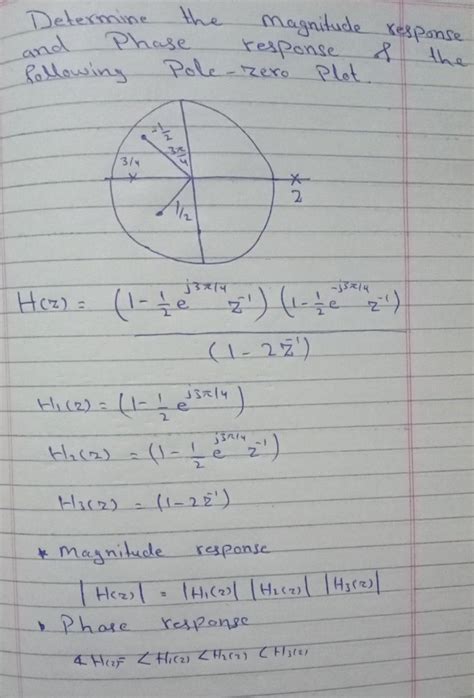 Determine the magnitude response
and Phase response of the
following Pole-zero Plot.
-1/2
3π/4
3/4
1/2
2
H(z) = (1 - 1/2 e^{j3π/4} z^{-1}) (1 - 1/2 e^{-j3π/4} z^{-1})
(1 - 2z^{-1})
H₁(z) = (1 - 1/2 e^{j3π/4})
H₂(z) = (1 - 1/2 e^{j3π/4} z^{-1})
H₃(z) = (1 - 2z^{-1})
* Magnitude response
|H(z)| = |H₁(z)| |H₂(z)| |H₃(z)|
• Phase response
∠H(z) = ∠H₁(z) ∠H₂(z) ∠H₃(z)